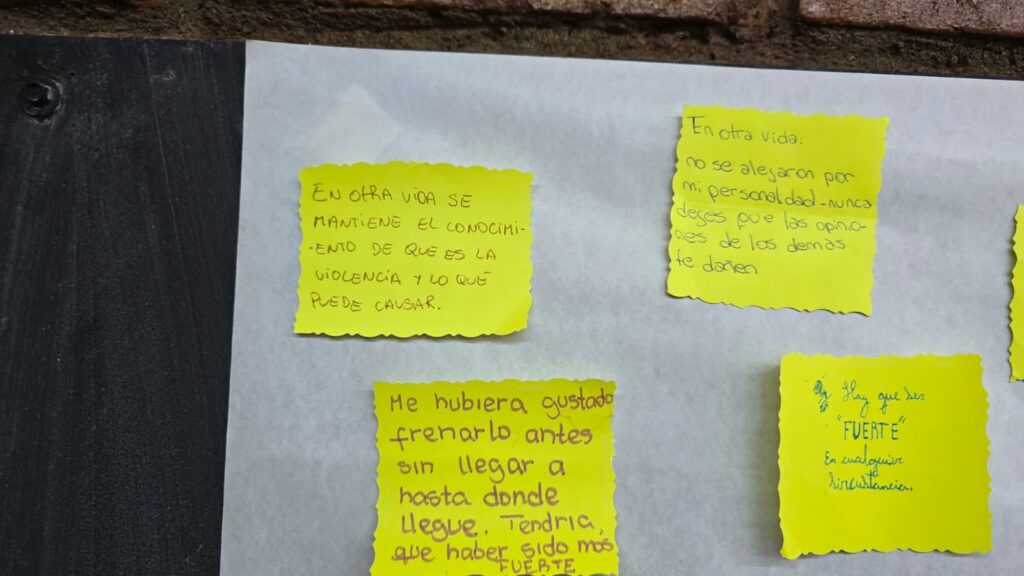 EN OTRA VIDA SE
MANTIENE EL CONOCIMI-
-ENTO DE QUE ES LA
VIOLENCIA Y LO QUE
PUEDE CAUSAR.
En otra vida:
no se alejaron por
mi personaldad-nunca
dejes que las opinio-
nes de los demas
te dañen
Me hubiera gustado
frenarlo antes
sin llegar a
hasta donde
llegue. Tendria,
que haber sido mas
FUERTE
Hay que ser
"FUERTE"
En cualquier
sircustancia.